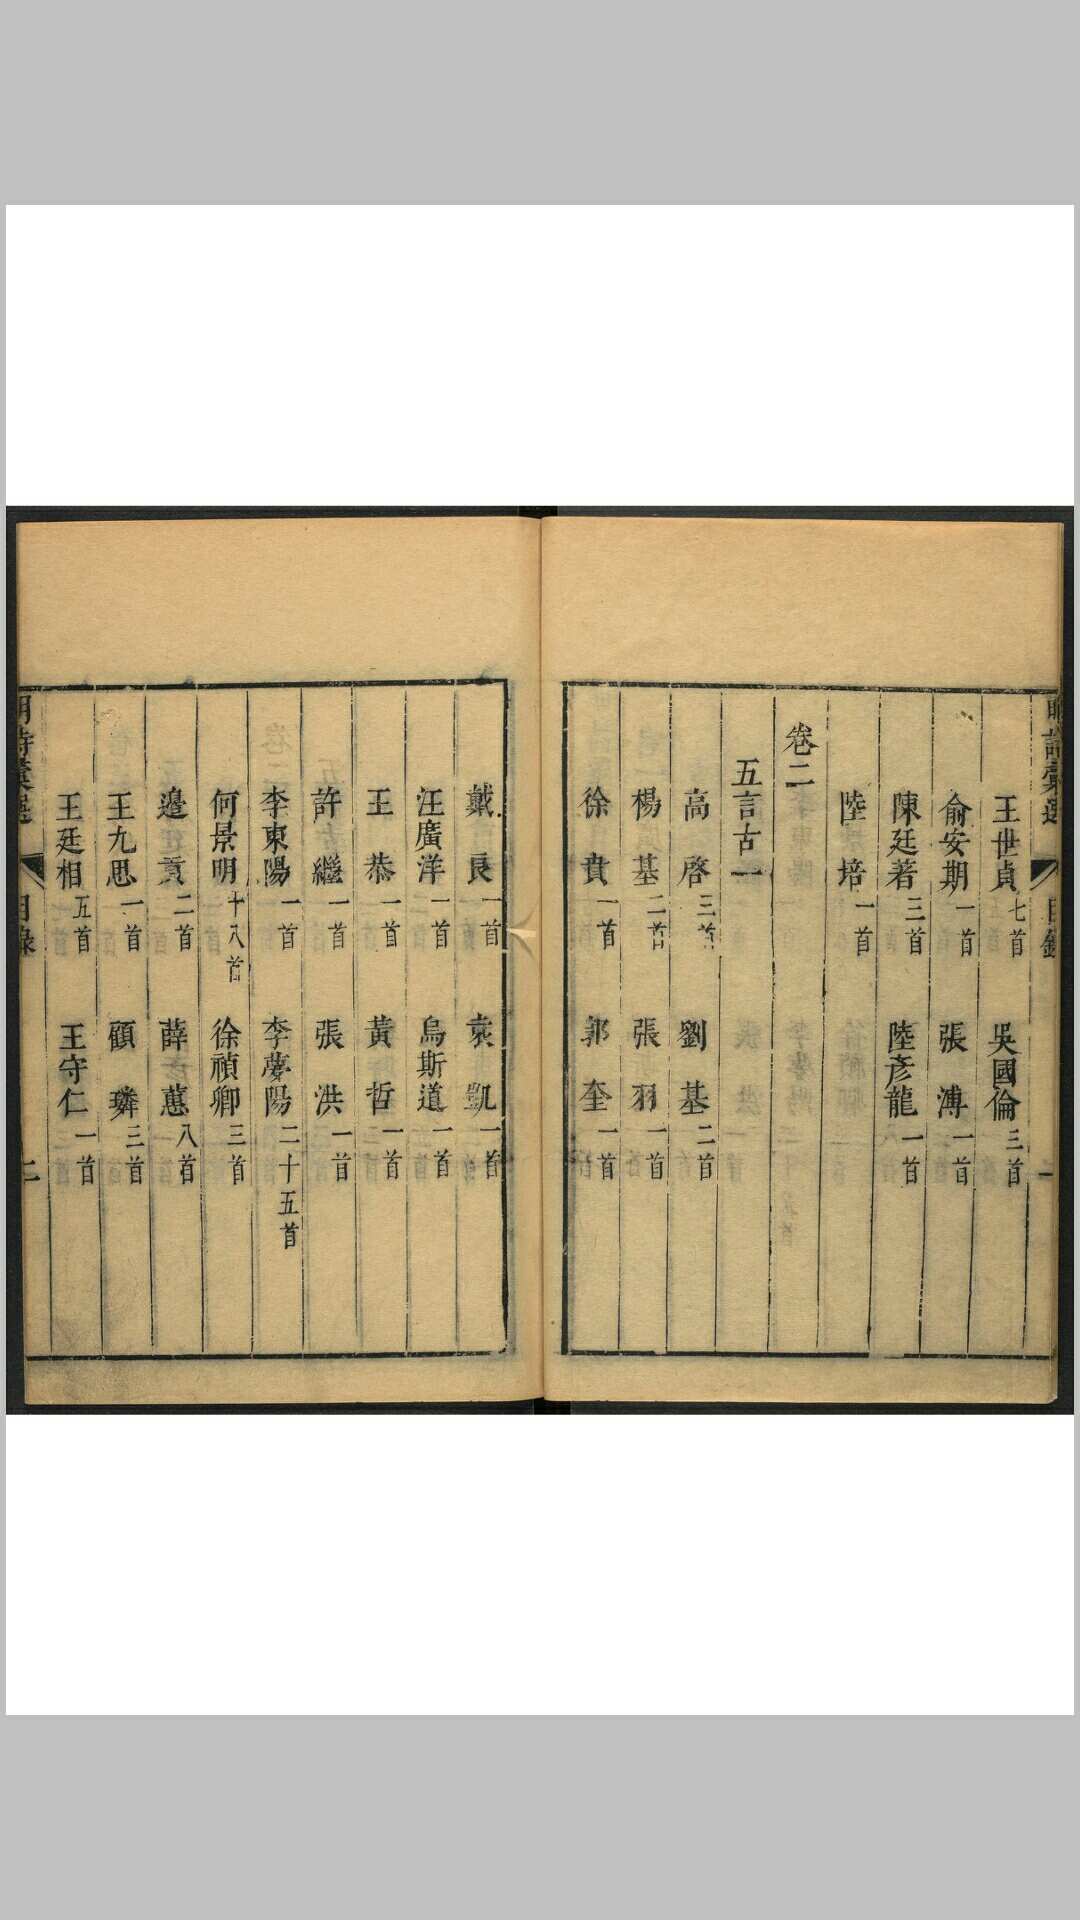 王世貞七首 吳國倫三首
俞安期一首 張溥一首
陳廷著三首 陸彥龍一首
陸培一首
卷二
五言古一
高啓三首 劉基二首
楊基二首 張羽一首
徐賁一首 郭奎一首
戴良一首 袁凱一首
汪廣洋一首 烏斯道一首
王恭一首 黃哲一首
許繼一首 張洪一首
李東陽一首 李夢陽二十五首
何景明十八首 徐禎卿三首
邉貢二首 薛蕙八首
王九思一首 顧璘三首
王廷相五首 王守仁一首
目錄 二